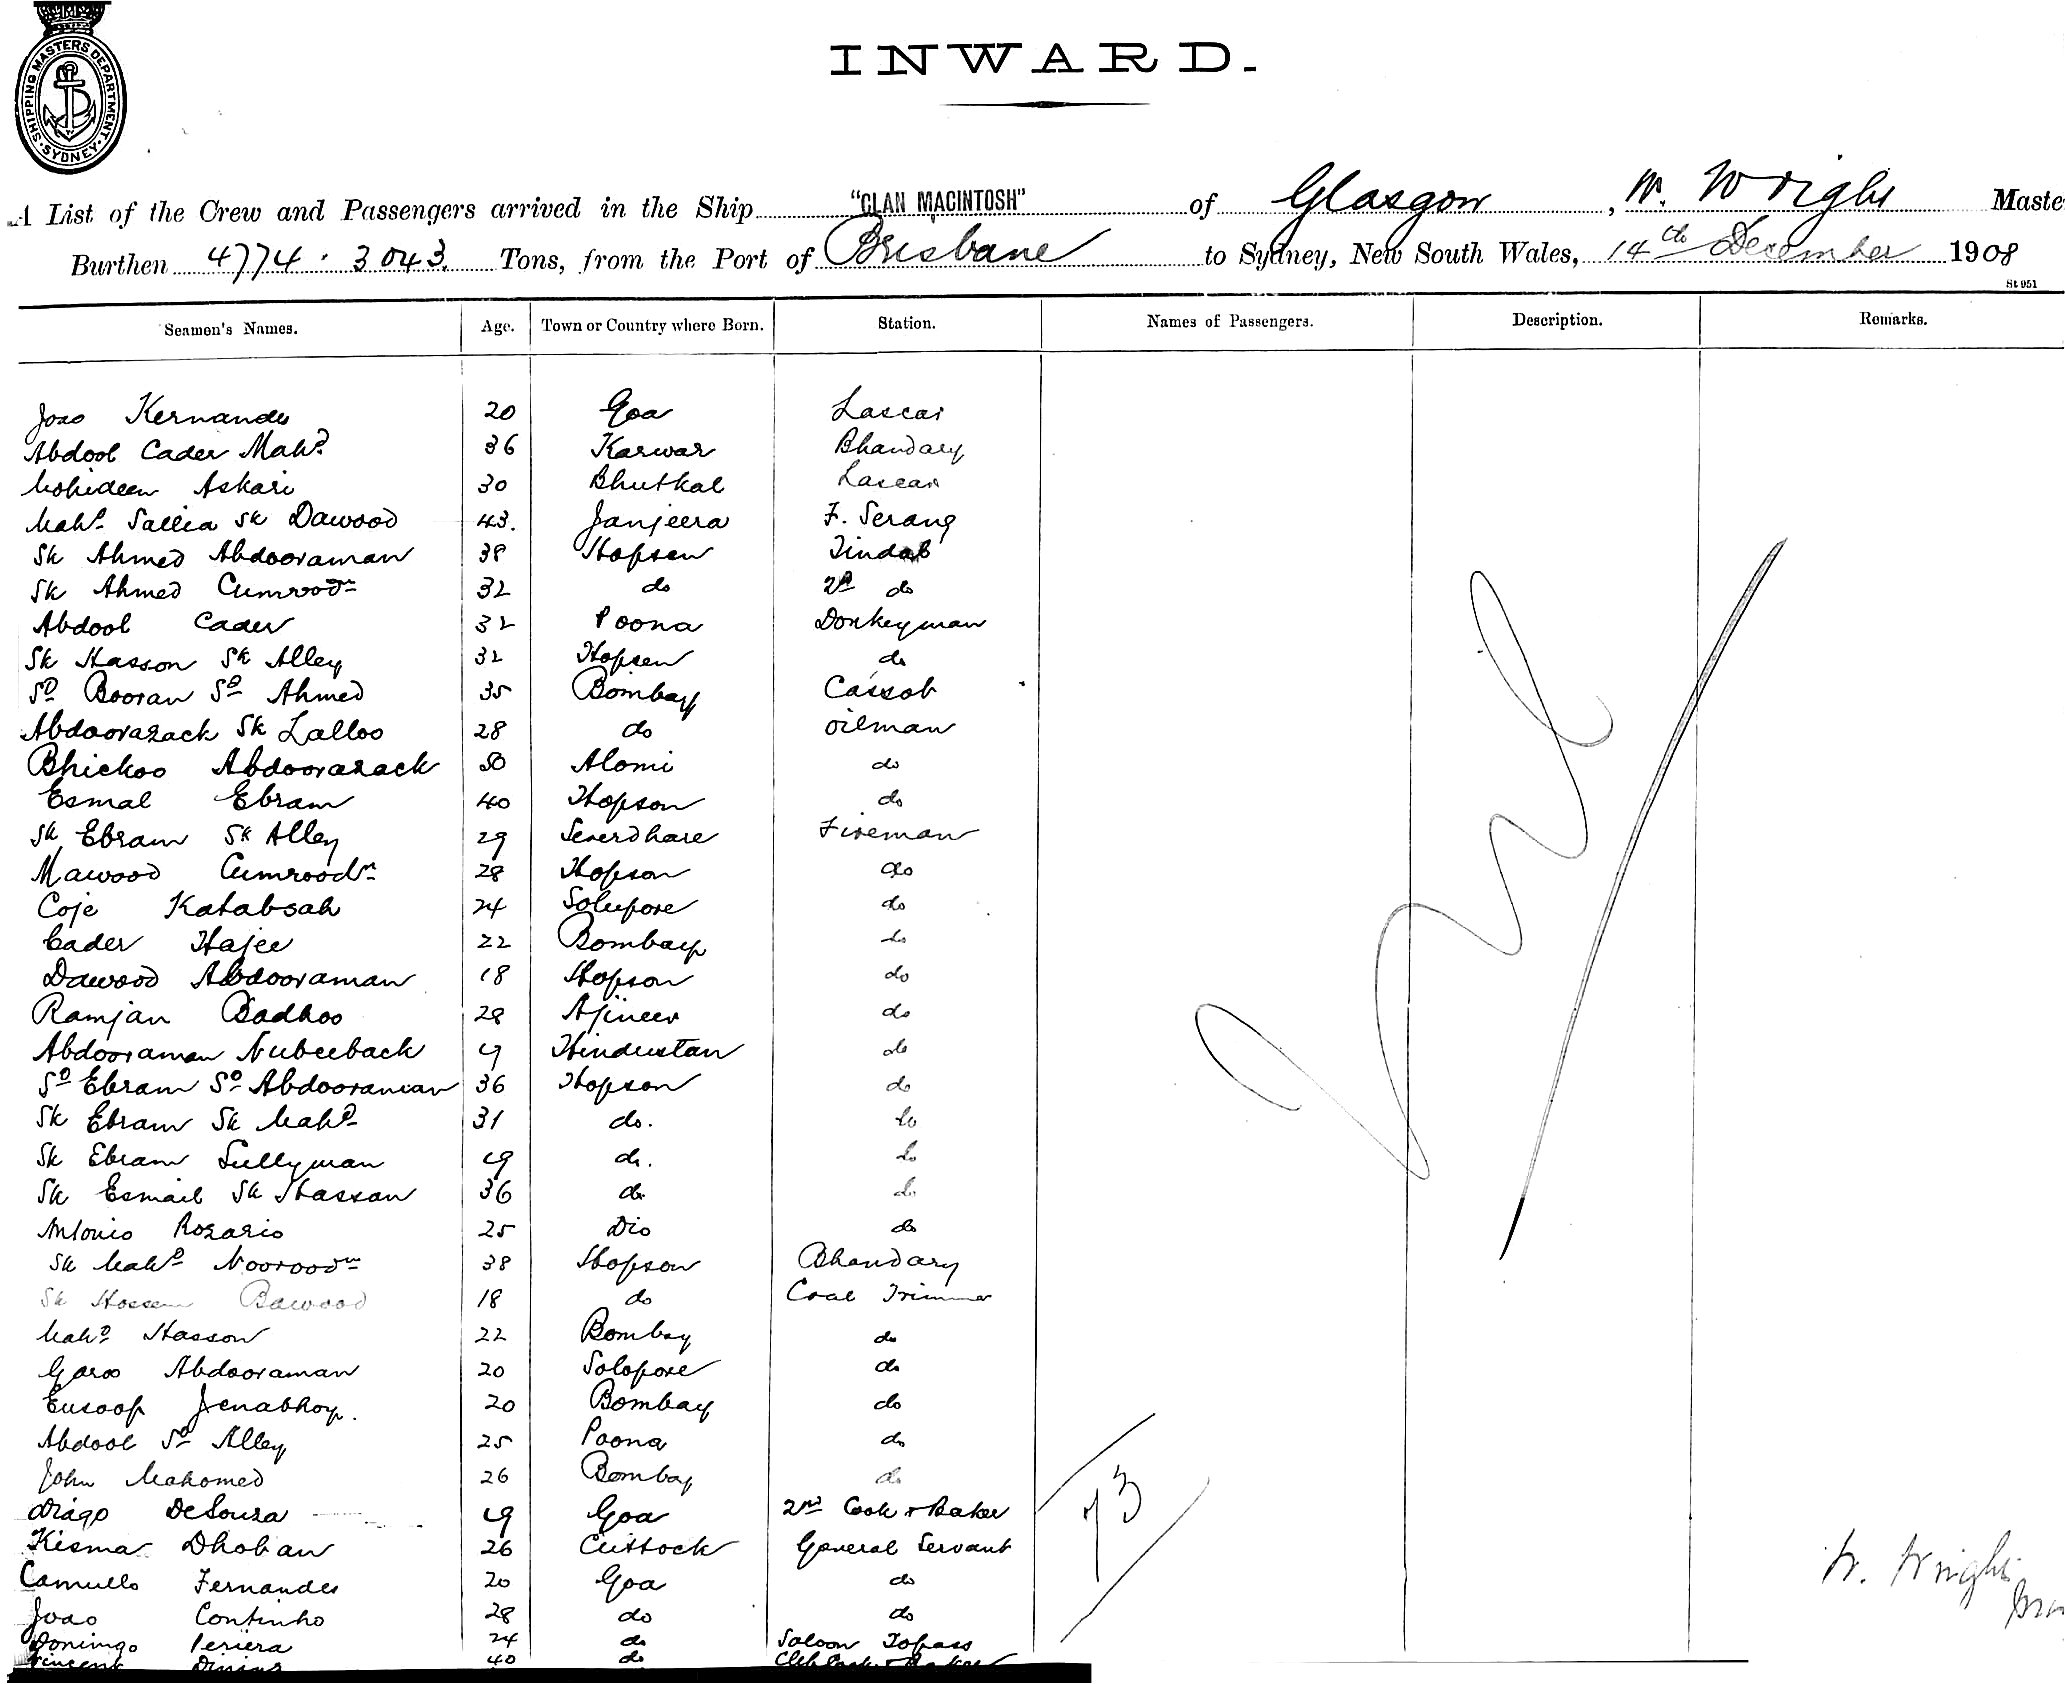 SHIPPING MASTERS DEPARTMENT. SYDNEY.
INWARD.
A List of the Crew and Passengers arrived in the Ship "CLAN MACINTOSH" of Glasgow, W. Wright Maste
Burthen 4774 . 3043. Tons, from the Port of Brisbane to Sydney, New South Wales, 14th December 1908
St 951
Seamen's Names. Age. Town or Country where Born. Station. Names of Passengers. Description. Remarks.
Joao Kernandes 20 Goa Lascar
Abdool Cader Mahd 36 Karwar Bhandary
Mohideen Askari 30 Bhutkal Lascar
Mahd Sallia Sk Dawood 43. Janjeera F. Serang
Sk Ahmed Abdooraman 38 Hopsen Tindal
Sk Ahmed Cumroodn 32 do 2d do
Abdool Cader 32 Poona Donkeyman
Sk Hasson Sk Alley 32 Hopsen do
Sd Booran Sd Ahmed 35 Bombay Cassob
Abdoorazack Sk Lalloo 28 do oilman
Bhickoo Abdoorazack 50 Alomi do
Esmal Ebram 40 Hopson do
Sk Ebram Sk Alley 29 Severdhare Fireman
Mawood Cumroodn 28 Hopson do
Coje Katabsah 24 Solupore do
Cader Hajee 22 Bombay do
Dawood Abdooraman 18 Hopson do
Ramjan Badhoo 28 Ajineer do
Abdooraman Nubeeback 19 Hindustan do
Sd Ebram Sd Abdooraman 36 Hopson do
Sk Ebram Sk Mahd 31 do. do
Sk Ebram Sullyman 19 do. do
Sk Esmail Sk Hassan 36 do do
Antonio Rozario 25 Dio do
Sk Mahd Nooroodn 38 Hopson Bhandary
Sk Hossen Dawood 18 do Coal Trimmer
Mahd Hasson 22 Bombay do
Garoo Abdooraman 20 Solopore do
Eusoof Jenabhoy. 20 Bombay do
Abdool Sd Alley 25 Poona do
John Mahomed 26 Bombay do
Diago DeSouza 19 Goa 2nd Cook & Baker
Kisma Dhoban 26 Cuttock General Servant
Camullo Fernandes 20 Goa do
Joao Continho 28 do do
Domingo Periera 24 do Saloon Topass
Vincent 40 do
nil
73
W. Wright